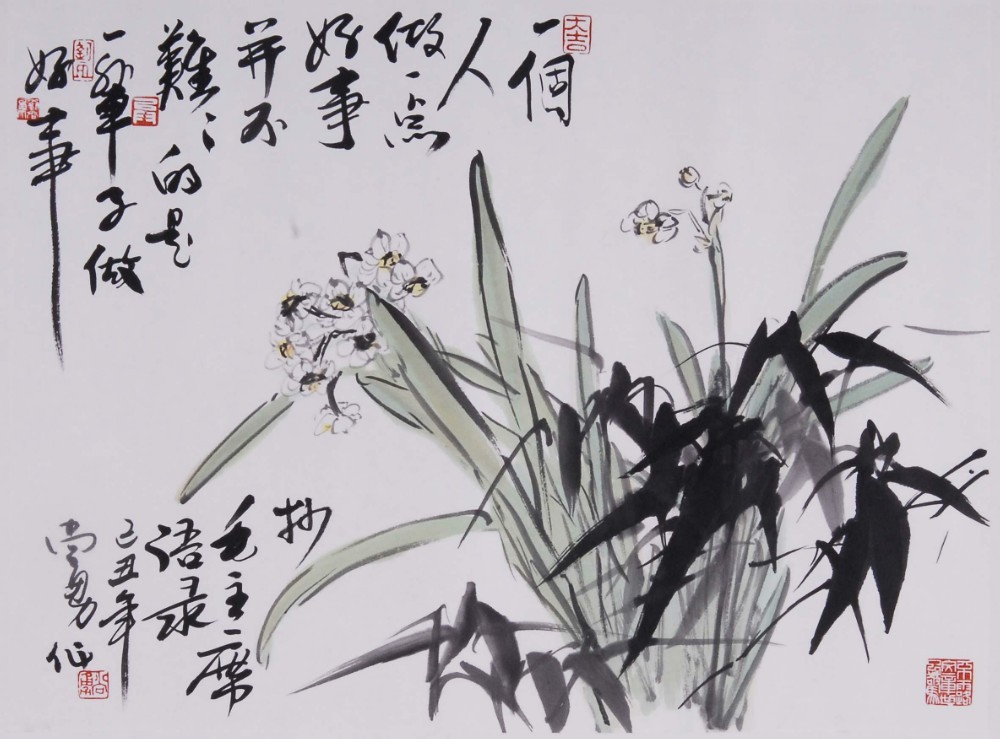 大吉
一個
人
做一点
好事
并不
難〻的是
一輩子做
好事
抄
毛主席
语录
己丑年
尚勇作